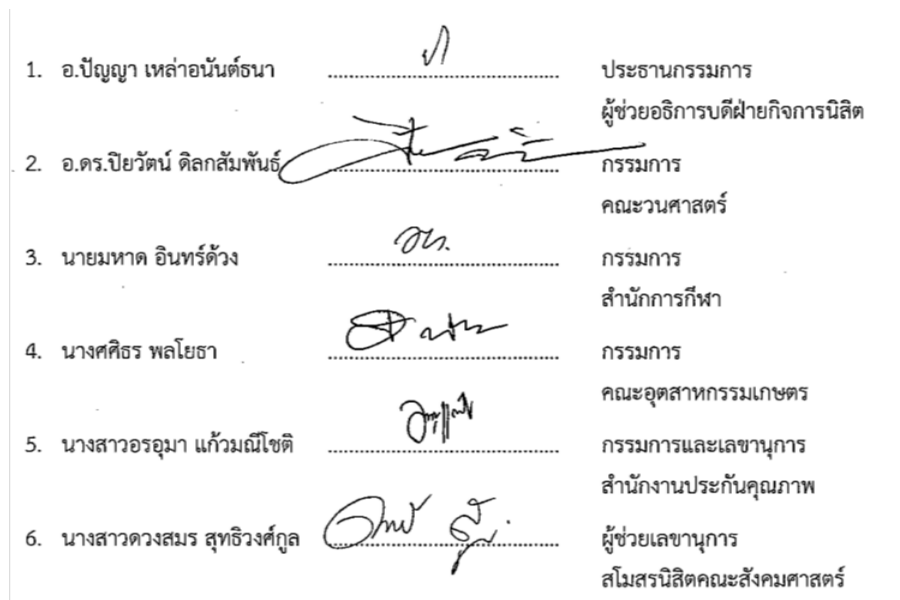 1. อ.ปัญญา เหล่าอนันต์ธนา ............................................ ประธานกรรมการ
ผู้ช่วยอธิการบดีฝ่ายกิจการนิสิต
2. อ.ดร.ปิยวัตน์ ดิลกสัมพันธ์ ............................................ กรรมการ
คณะวนศาสตร์
3. นายมหาด อินทร์ด้วง ............................................ กรรมการ
สำนักการกีฬา
4. นางศศิธร พลโยธา ............................................ กรรมการ
คณะอุตสาหกรรมเกษตร
5. นางสาวอรอุมา แก้วมณีโชติ ............................................ กรรมการและเลขานุการ
สำนักงานประกันคุณภาพ
6. นางสาวดวงสมร สุทธิวงศ์กูล ............................................ ผู้ช่วยเลขานุการ
สโมสรนิสิตคณะสังคมศาสตร์